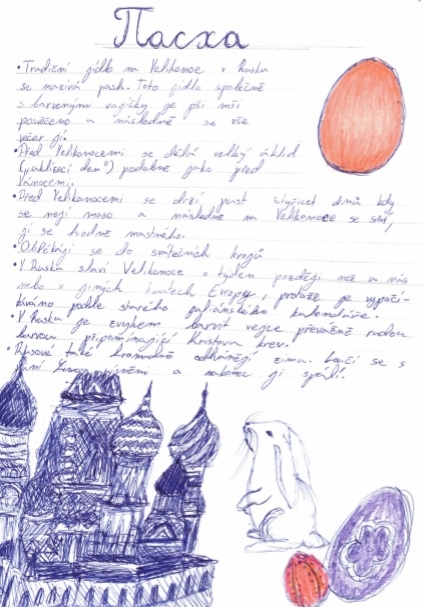 Пасха
• Tradiční jídlo na Velikonoce v Rusku
se nazývá pash. Toto jídlo společně
s barvenými vajíčky je při mši
posvěceno a následně se vše
večer jí.
• Před Velikonocemi se dělá velký úklid
("uklízecí den") podobně jako před
Vánocemi.
• Před Velikonocemi se drží půst čtyřicet dnů kdy
se nejí maso a následně na Velikonoce se
jí se hodně mastného.
• Oblékají se do svátečních krojů
• V Rusku slaví Velikonoce o týden později než u nás
nebo v jiných koutech Evropy, protože je vypočí-
távámo podle starého juliánského kalendáře.
• V Rusku je zvykem barvit vejce převážně rudou
barvou připomínající Kristovu krev.
• Rusové také hromadně odhánějí zimu. Loučí se s
ní a nakonec ji spálí.